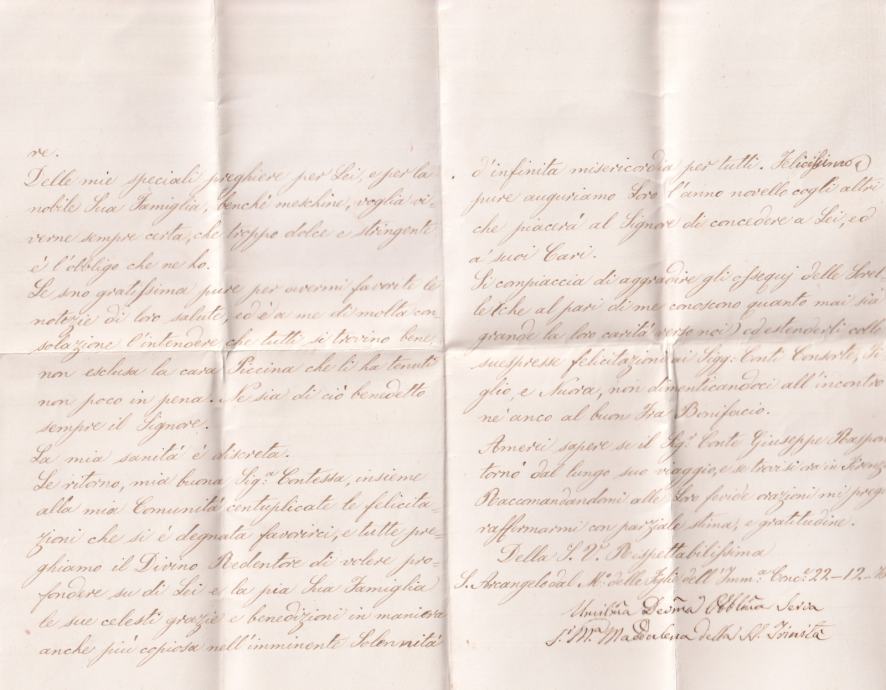 re.
Delle mie speciali preghiere per Lei, e per la
nobile Sua Famiglia, benchè meschine, voglia vi=
verne sempre certa, che troppo dolce e stringente
è l'obbligo che ne ho.
Le sno gratissima pure per avermi favorite le
notizie di loro salute, ed è a me di molta con
solazione l'intendere che tutti si trovino bene,
non esclusa la cara Piccina che li ha tenuti
non poco in pena. Ne sia di ciò benedetto
sempre il Signore.
La mia sanità è discreta.
Le ritorno, mia buona Sig.ª Contessa, insieme
alla mia Comunità centuplicate le felicita=
zioni che si è degnata favorirci, e tutte pre=
ghiamo il Divino Redentore di volere pro=
fondere su di Lei e la pia Sua Famiglia
le sue celesti grazie e benedizioni in maniera
anche più copiosa nell'imminente Solennità
d'infinita misericordia per tutti. Felicissimo
pure auguriamo Loro l'anno novello cogli altri
che piacerà al Signore di concedere a Lei, ed
a suoi Cari.
Si conpiaccia di aggradire gli ossequj delle Sorel
le (che al pari di me conoscono quanto mai sia
grande la loro carità verso noi) ed estenderli colle
suespresse felicitazioni ai Sigg: Conti Consorte, Fi
glio, e Nuora, non dimenticandoci all'incontro
nè anco al buon Fra Bonifacio.
Amerei sapere se il Sig.r Conte Giuseppe Raspon
tornò dal lungo suo viaggio, e se trovisi ora in Firenz
Raccomandandomi alle Loro fervide orazioni mi preg
raffermarmi con parziale stima, e gratitudine.
Della S. V. Rispettabilissima
S. Arcangelo dal M.º delle Figlie dell'Imm.ª Conc.e 22-12-
Umilma Devma Obblma Serva
S.r M.a Maddalena della SS. Trinità